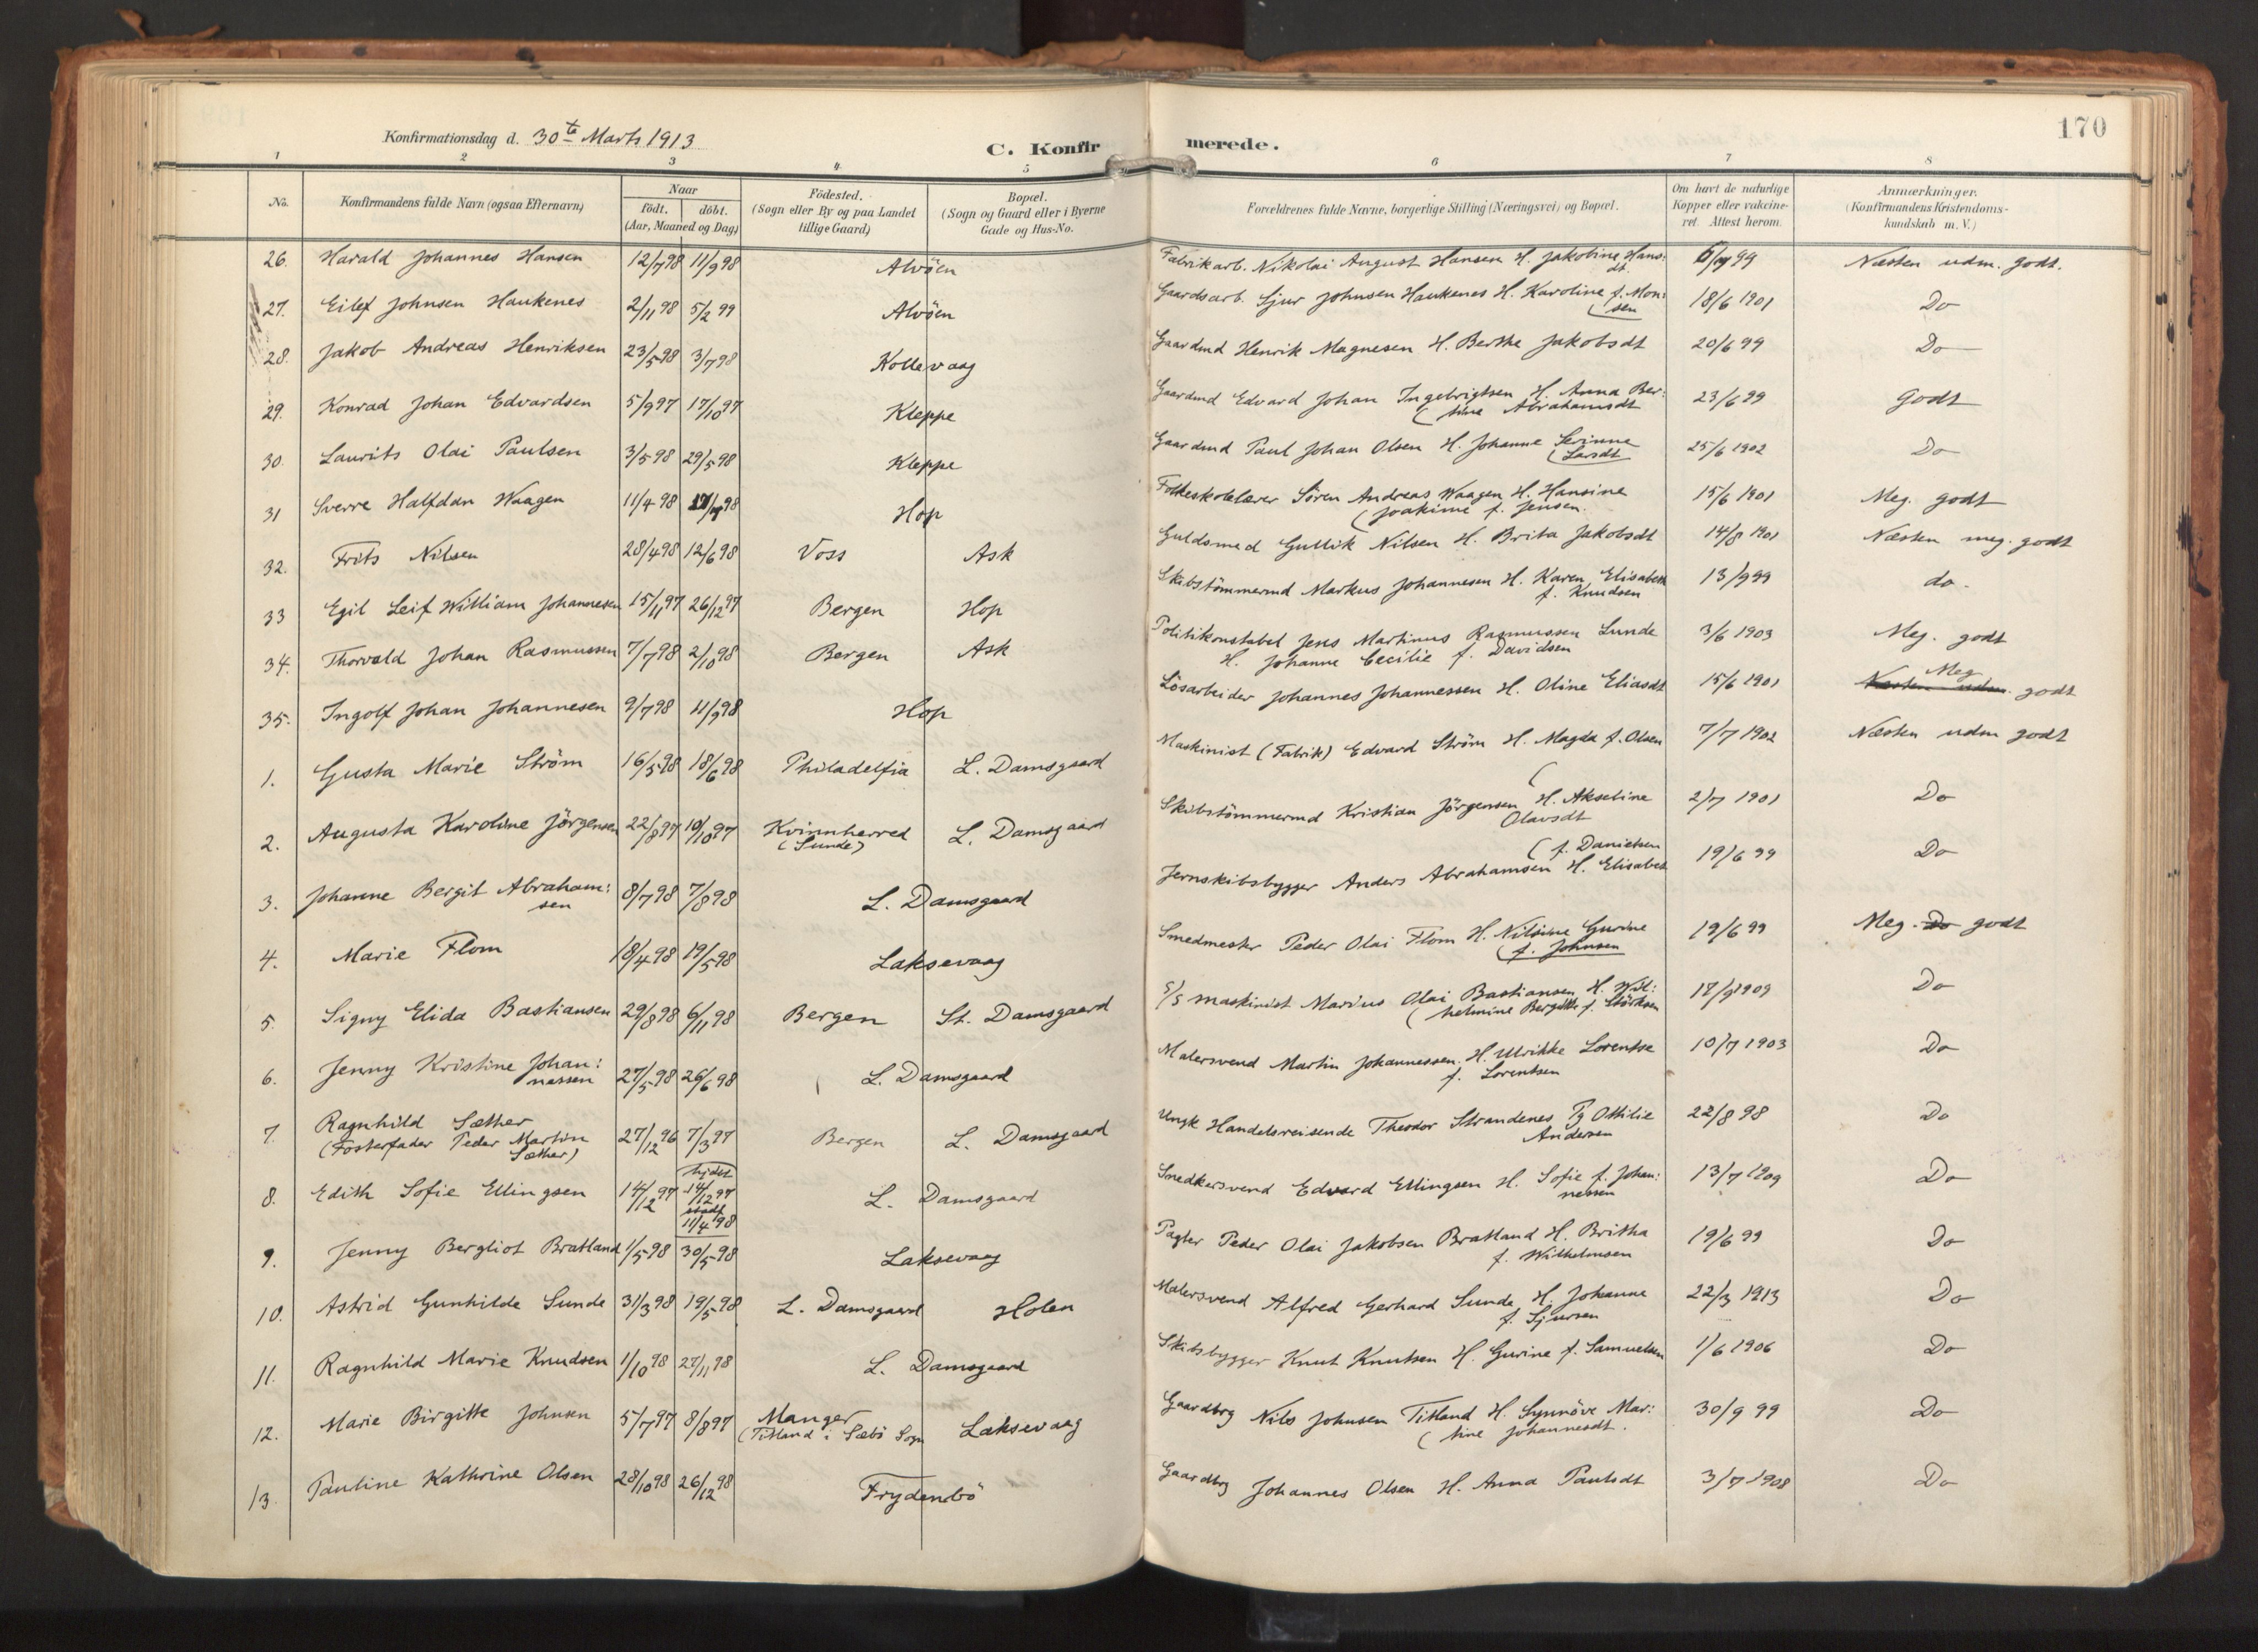 170
Konfirmationsdag d. 30te Marts 1913
C. Konfirmerede.
1 2 3 4 5 6 7 8
No. Konfirmandens fulde Navn (ogsaa Efternavn) Naar födt. döbt. (Aar, Maaned og Dag)
Födested. (Sogn eller By og paa Landet tillige Gaard)
Bopæl. (Sogn og Gaard eller i Byerne Gade og Hus-No.
Forældrenes fulde Navne, borgerlige Stilling (Næringsvei) og Bopæl.
Om havt de naturlige Kopper eller vakcineret. Attest herom.
Anmærkninger. (Konfirmandens Kristendomskundskab m. V.)
26. Harald Johannes Hansen 12/7 98 11/9 98 Alvöen Fabrikarb. Nikolai August Hansen H. Jakobine Hans: dt 99 Næsten udm. godt.
27. Eilef Johnsen Haukenes 2/11 98 5/2 99 Alvöen Gaardsarb. Sjur Johnsen Haukenes H. Karoline f. Mon: sen 18/6 1901 Do
28. Jakob Andreas Henriksen 23/5 98 3/7 98 Kollevaag Gaardmd Henrik Magnesen H. Berthe Jakobsdt 20/6 99 Do
29. Konrad Johan Edvardsen 5/9 97 17/10 97 Kleppe Gaardmd Edvard Johan Ingebrigtsen H. Anna Ber: tine Abrahamsdt 23/6 99 Godt
30. Laurits Olai Paulsen 3/5 98 29/5 98 Kleppe Gaardmd Paul Johan Olsen H. Johanne Serinne Larsdt 25/6 1902 Do
31 Sverre Halfdan Waagen 11/4 98 98 Hop Folkeskolelærer Sören Andreas Waagen H. Hansine Joakime f. Jensen. 15/6 1901 Meg. godt
32. Frits Nilsen 28/4 98 12/6 98 Voss Ask Guldsmed Gullik Nilsen H. Brita Jakobsdt 14/8 1901 Næsten meg. godt
33 Egil Leif William Johannesen 15/11 97 26/12 97 Bergen Hop Skibstömmermd Markus Johannesen H. Karen Elisabeth f. Knudsen 13/9 99 do.
34. Thorvald Johan Rasmussen 7/7 98 2/10 98 Bergen Ask Politikonstabel Jens Martinus Rasmussen Lunde H. Johanne Cecilie f. Davidsen 3/6 1903 Meg. godt
35. Ingolf Johan Johannesen 9/7 98 11/9 98 Hop Lösarbeider Johannes Johannessen H. Oline Eliasdt 15/6 1901 Næsten udm. Meg godt
1. Gusta Marie Ström 16/5 98 18/6 98 Philadelfia L. Damsgaard Maskinist (Fabrik) Edvard Ström H. Magda f. Olsen 7/7 1902 Næsten udm godt
2. Augusta Karoline Jörgensen 22/8 97 10/10 97 Kvinnherred (Sunde) L. Damsgaard Skibstömmermd Kristian Jörgensen H. Akseline Olavsdt 2/7 1901 Do
3. Johanne Bergit Abraham: sen 8/7 98 7/8 98 L. Damsgaard Jernskibsbygger Anders Abrahamsen H. Elisabet f. Danielsen 19/6 99 Do
4. Marie Flom 18/4 98 19/5 98 Laksevaag Smedmester Peder Olai Flom H. Nilsine Gurine f. Johnsen 19/6 99 Meg. Do godt
5. Signy Elida Bastiansen 29/8 98 6/11 98 Bergen St. Damsgaard S/S maskinist Marius Olai Bastiansen H. Wil: helmine Bergitte f. 17/9 1909 Do
6. Jenny Kristine Johan: nessen 27/5 98 26/6 98 L. Damsgaard Malersvend Martin Johannessen H. Ulrikke Lorentse f. Lorentsen 10/7 1903 Do
7. Ragnhild Sæther (Fosterfader Peder Martin Sæther) 27/12 96 7/3 97 Bergen L. Damsgaard Ungk Handelsreisende Theodor Strandenes Pg Ottilie Andersen 22/8 98 Do
8. Edith Sofie Ellingsen 14/12 97 hjdbt 14/12 97 stadf 11/4 98 L. Damsgaard Snedkersvend Edvard Ellingsen H. Sofie f. Johan: nessen 13/7 1909 Do
9. Jenny Bergliot Bratland 1/5 98 30/5 98 Laksevaag Pagter Peder Olai Jakobsen Bratland H. Britha f. Wilhelmsen 19/6 99 Do
10. Astrid Gunhilde Sunde 31/3 98 19/5 98 L. Damsgaard Holen Malersvend Alfred Gerhard Sunde H. Johanne f. Sjursen 22/3 1913 Do
11. Ragnhild Marie Knudsen 1/10 98 27/11 98 L. Damsgaard Skibsbygger Knut Knutsen H. Gurine f. Samuelsen 1/6 1906 Do
12. Marie Birgitte Johnsen 5/7 97 8/8 97 Manger (Titland i Sæbö Sogn Laksevaag Gaardbrg Nils Johnsen Titland H. Synnöve Mar: tine Johannesdt. 30/9 99 Do
13. Pauline Kathrine Olsen 28/10 98 26/12 98 Frydenbö Gaardbrg Johannes Olsen H. Anna Paulsdt 3/7 1908 Do